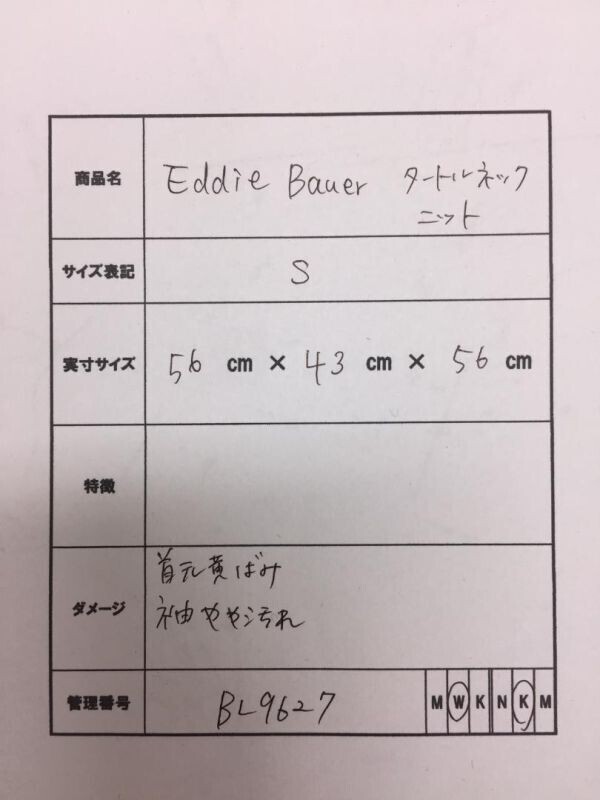 商品名 Eddie Bauer タートルネック
ニット
サイズ表記 S
実寸サイズ 56 cm × 43 cm × 56 cm
特徴
ダメージ
首元黄ばみ
袖やや汚れ
管理番号 BL9627 M W K N K M